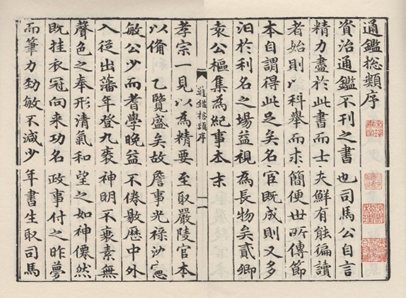 通鑑捴類序
資治通鑑不刊之書也司馬公自言
精力盡於此書而士夫鮮有能徧讀
者始則以科舉而求簡便世所傳節
本自謂得此足矣名宦既成則又多
汩於利名之場益視為長物矣貳卿
袁公樞集為紀事本末
通鑑捴類序 一
孝宗一見以為精要至取嚴陵官本
以備 乙覽盛矣故 詹事光祿沈憲
敏公少而耆學晚益不倦敭歷中外
入從出藩年登九袠神明不衰素無
聲色之奉形清氣和望之如神僊然
既挂衣冠向來功名政事付之昨夢
而筆力勁敏不減少年書生取司馬